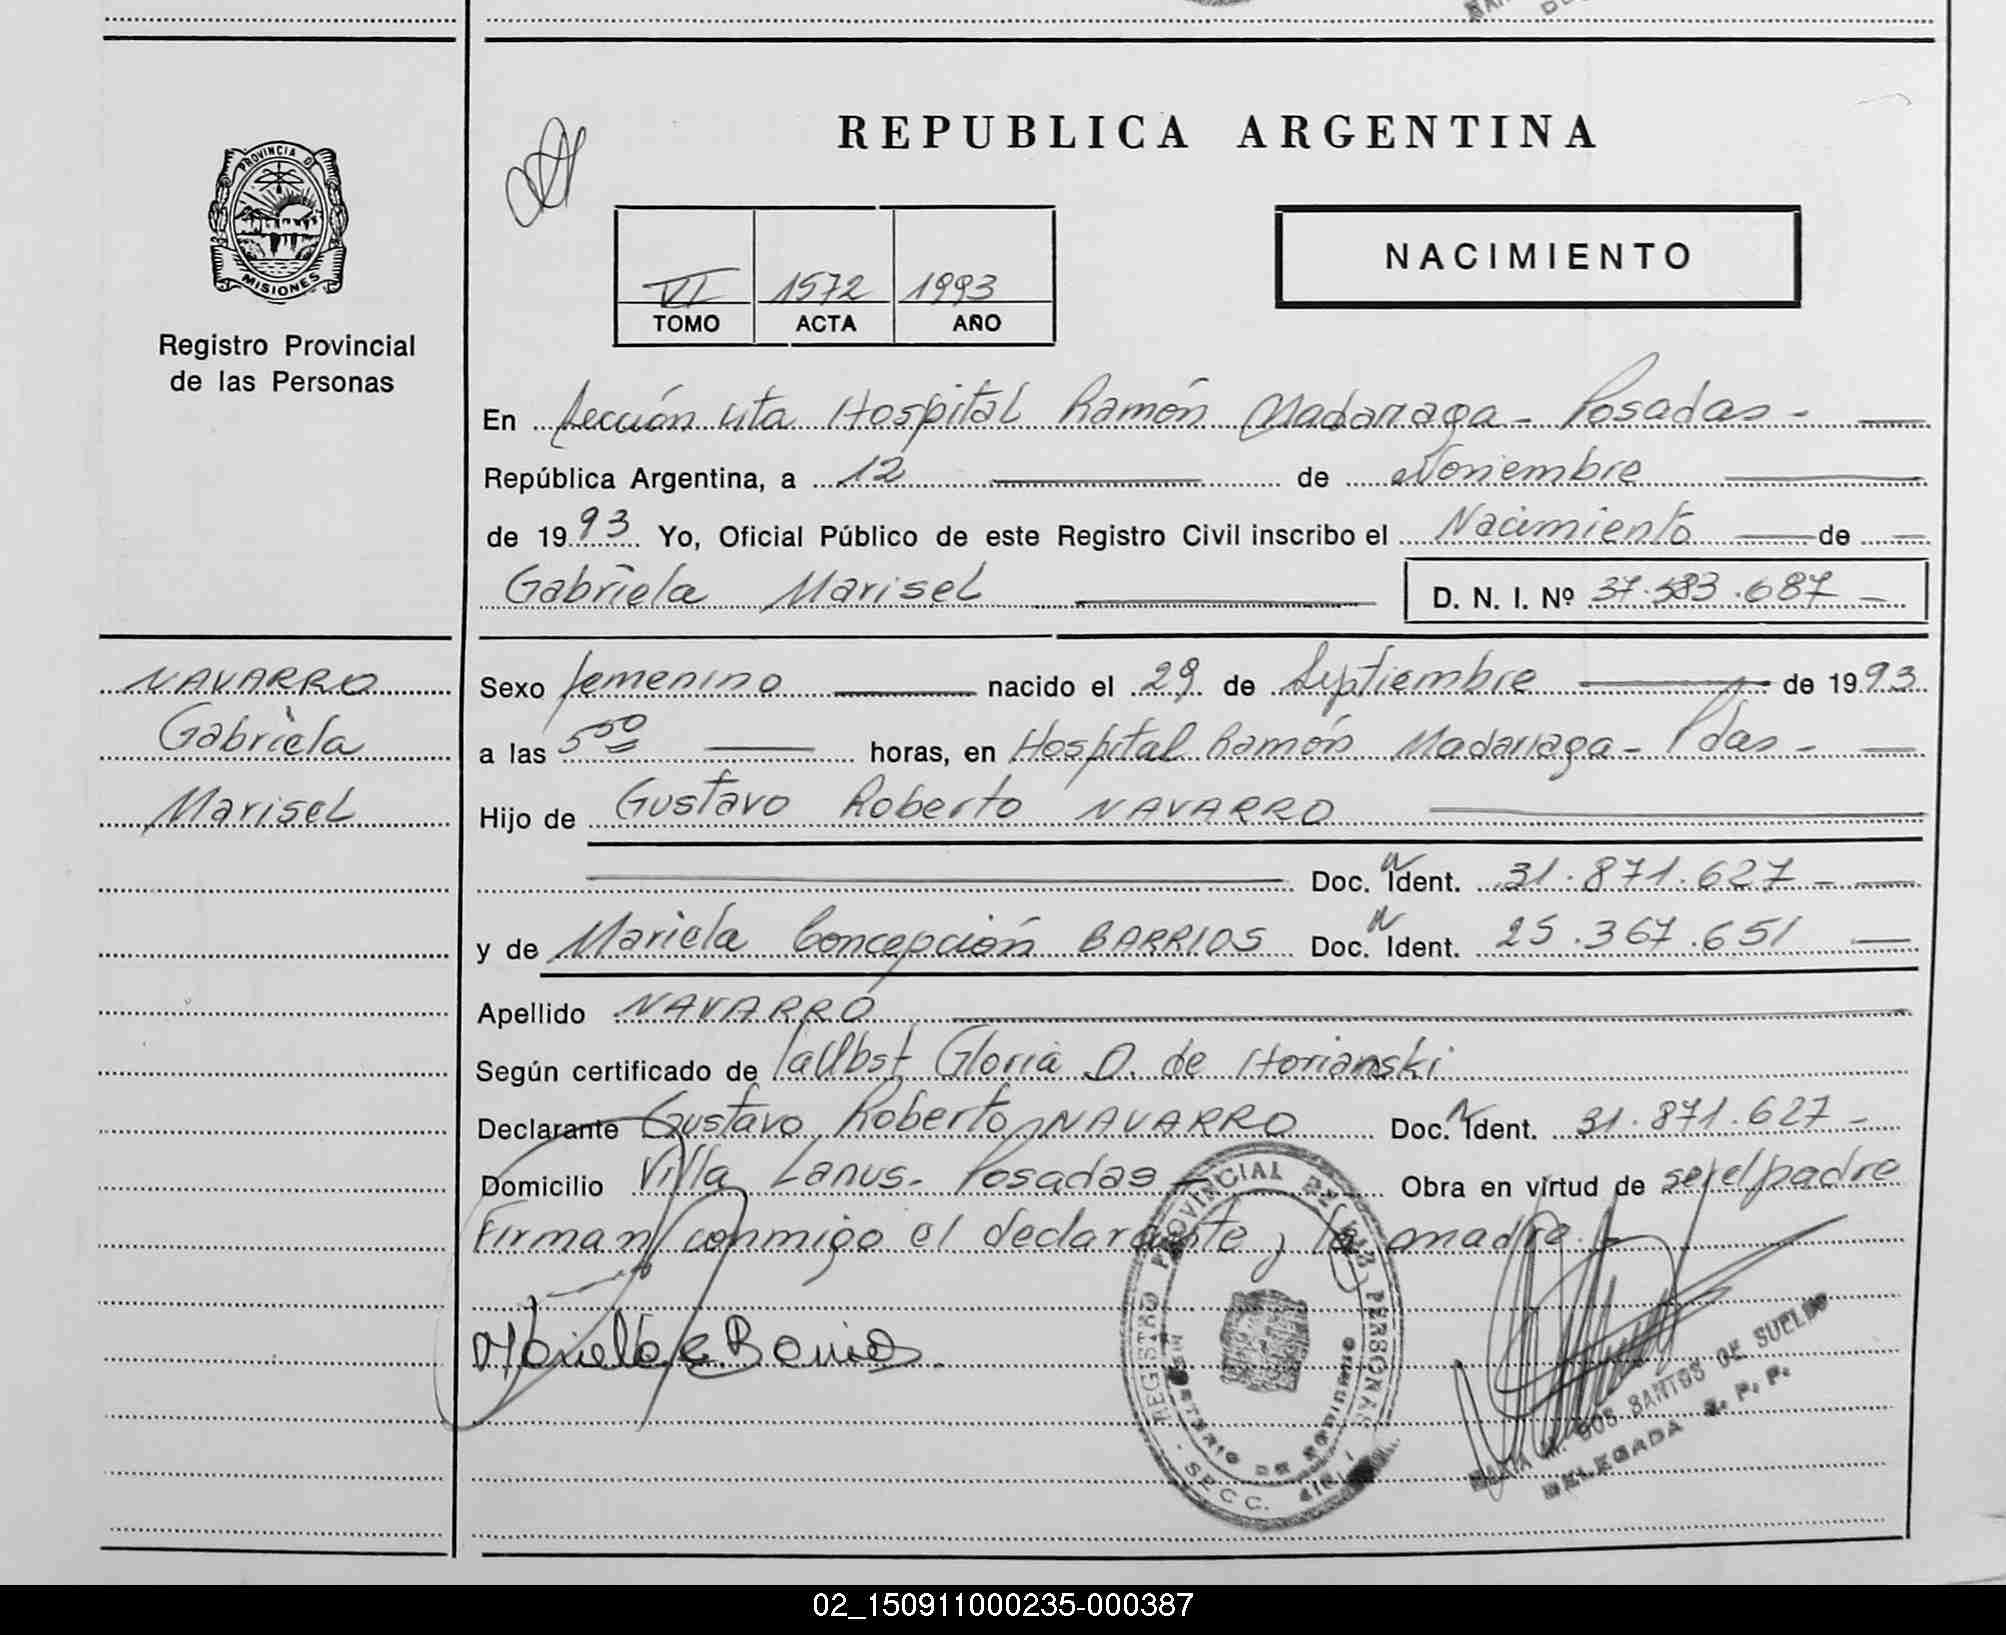 REPUBLICA ARGENTINA
PROVINCIA DE
MISIONES
Registro Provincial
de las Personas
NACIMIENTO
VI 1572 1993
TOMO ACTA AÑO
En Sección 4ta Hospital Ramón Madariaga - Posadas -
República Argentina, a 12 de Noviembre
de 1993 Yo, Oficial Público de este Registro Civil inscribo el Nacimiento de
Gabriela Marisel D. N. I. Nº 37.583.687 -
NAVARRO
Gabriela
Marisel
Sexo femenino nacido el 29 de Septiembre de 1993
a las 5 50 horas, en Hospital Ramón Madariaga - Pdas -
Hijo de Gustavo Roberto NAVARRO
Doc. N Ident. 31.871.627 -
y de Mariela Concepción BARRIOS Doc. N Ident. 25.367.651
Apellido NAVARRO
Según certificado de Gloria D. de Horianski
Declarante Gustavo Roberto NAVARRO Doc. N Ident. 31.871.627 -
Domicilio Villa Lanus - Posadas - Obra en virtud de ser el padre
Firman conmigo el declarante y la madre.
Mariela C. Barrios.
REGISTRO PROVINCIAL DE LAS PERSONAS
MINISTERIO DE GOBIERNO
SECC. 4ta
MARIA M. DOS SANTOS DE SUELDO
DELEGADA R. P. P.
02_150911000235-000387